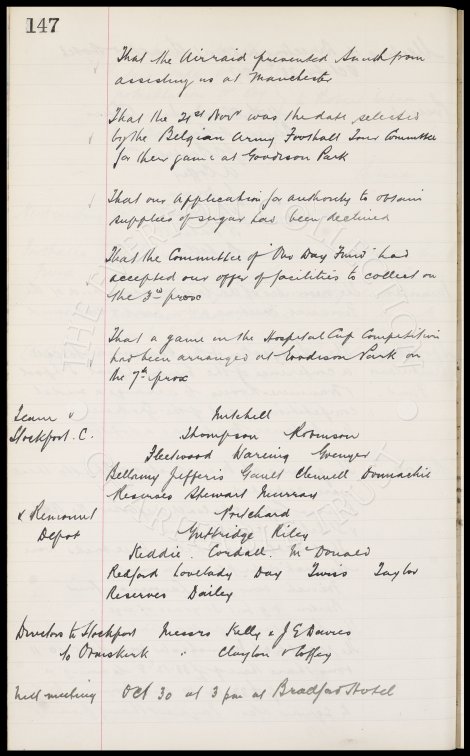 147
That the Air raid presented Smith from
assisting us at Manchester
That the 21st Novr was the date selected
by the Belgian Army Football Tour Committee
for their game at Goodison Park
That our application for authority to obtain
supplies of sugar has been declined
That the Committee of "Our Day Fund" had
accepted our offer of facilities to collect on
the 3rd prox
That a game in the Hospital Cup Competition
had been arranged at Goodison Park on
the 7th prox
Team v Mitchell
Stockport. C. Thompson Robinson
Fleetwood Wareing Grenyer
Bellamy Jefferis Gault Clennell Donnachie
Reserves Stewart Murray
& Remount Pritchard
Depot Guttridge Riley
Keddie. Cordall. McDonald
Redford Lovelady Day Twiss Taylor
Reserves Dailey
Directors to Stockport Messrs Kelly & J E Davies
to Ormskirk " Clayton & Coffey
Next meeting Oct 30 at 3 pm at Bradford Hotel
THE EVERTON COLLECTION
CHARITABLE TRUST